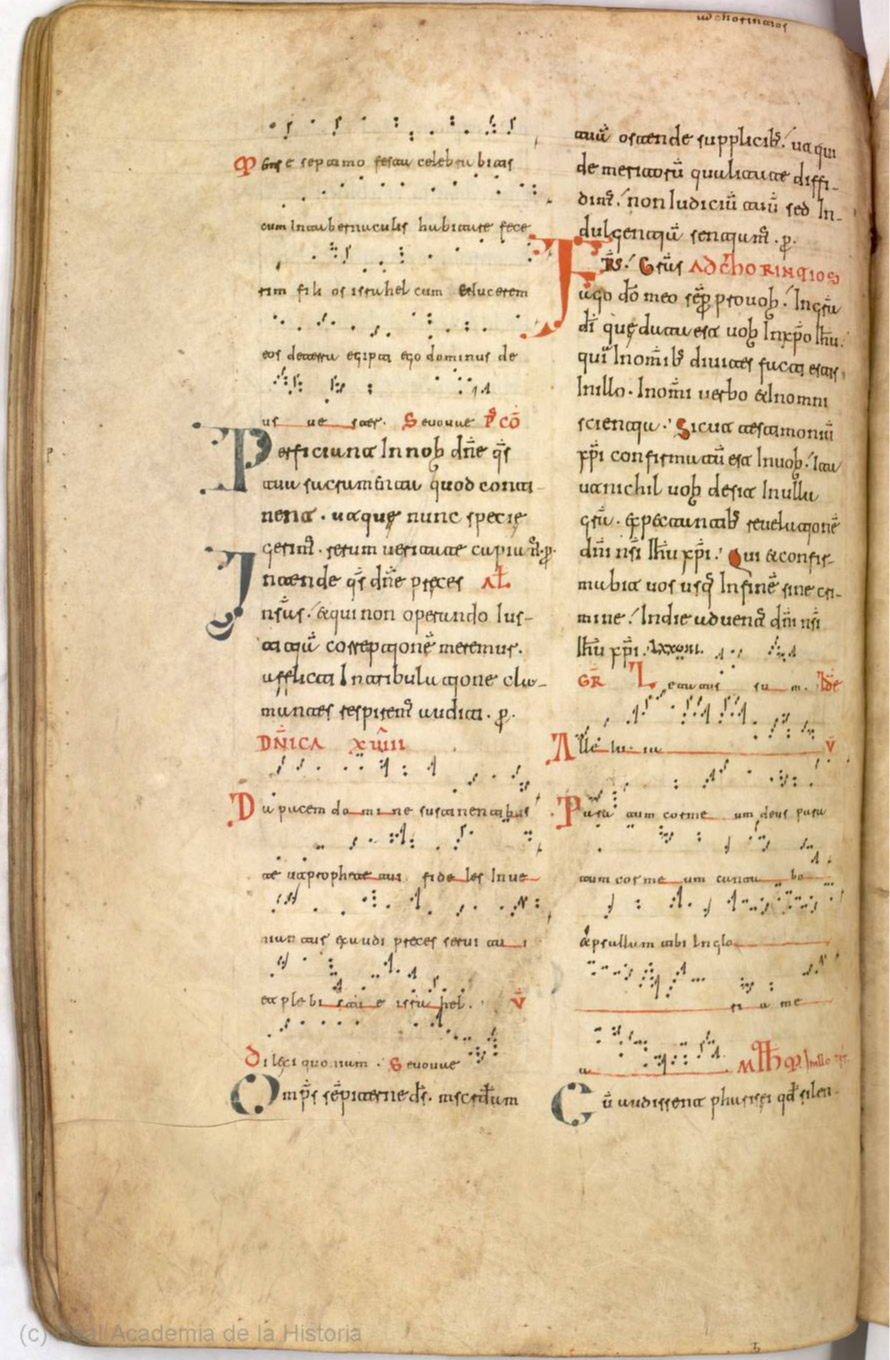 ad chorintios
Mense septimo festa celebrabitis
cum Intabernaculis habitare fece
rim filios israhel cum educerem
eos deterra egipti ego dominus de
us ues ter. Seuouae Ps Cō
Perficiant Innob dñe q̄s
tua sacramenta quod conti-
nent. ut que nunc specie
gerim̃. rerum ueritate capiam̃. p.
Intende q̄s dñe preces AL
nsãs. et qui non operando Ius-
titiã correptionẽ meremus.
afflicti Intribulatione cla-
mantes respirem̃ auditi. p.
DÑICA XVIIII
Da pacem domine sustinentibus
te utprophete tui fideles Inue
niantur exaudi preces serui tui
et plebis tue israhel. V̄
Dilexi quonam. Seuouae
Omp̄s sẽpiterne d̄s. misc̄rdiam
tuã ostende supplicib; ut qui
de meritorũ qualitate diffi-
dim̃. non Iudiciũ tuũ sed In-
dulgentiã sentiam̃. p.
FR̄S. Grãs AD CHORINTIOS
ago dõ meo sẽp prouob. Ingrã
dĩ que data est uob Inxp̄o Ihũ.
quĩ Inomĩb diuites facti estis,
Inillo. Inomĩ uerbo et Inomni
scientia. Sicut testimoniũ
xp̄i confirmatũ est Inuob. Ita
ut nichil uob desit Inulla
grã. expectantib reuelationẽ
dñi nr̃i Ihũ xp̄i. Qui et confir-
mabit uos usq; Infinẽ sine cri-
mine. Indie aduent̃ dñi nr̃i
Ihũ xp̄i.
GR̄ Letatus su m.
Alle lu ia V̄
Para tum corme um deus para
tum cor me um canta bo
et psallam tibi Inglo
ri a me
a
Cũ audissent pharisei qd̄ silen-